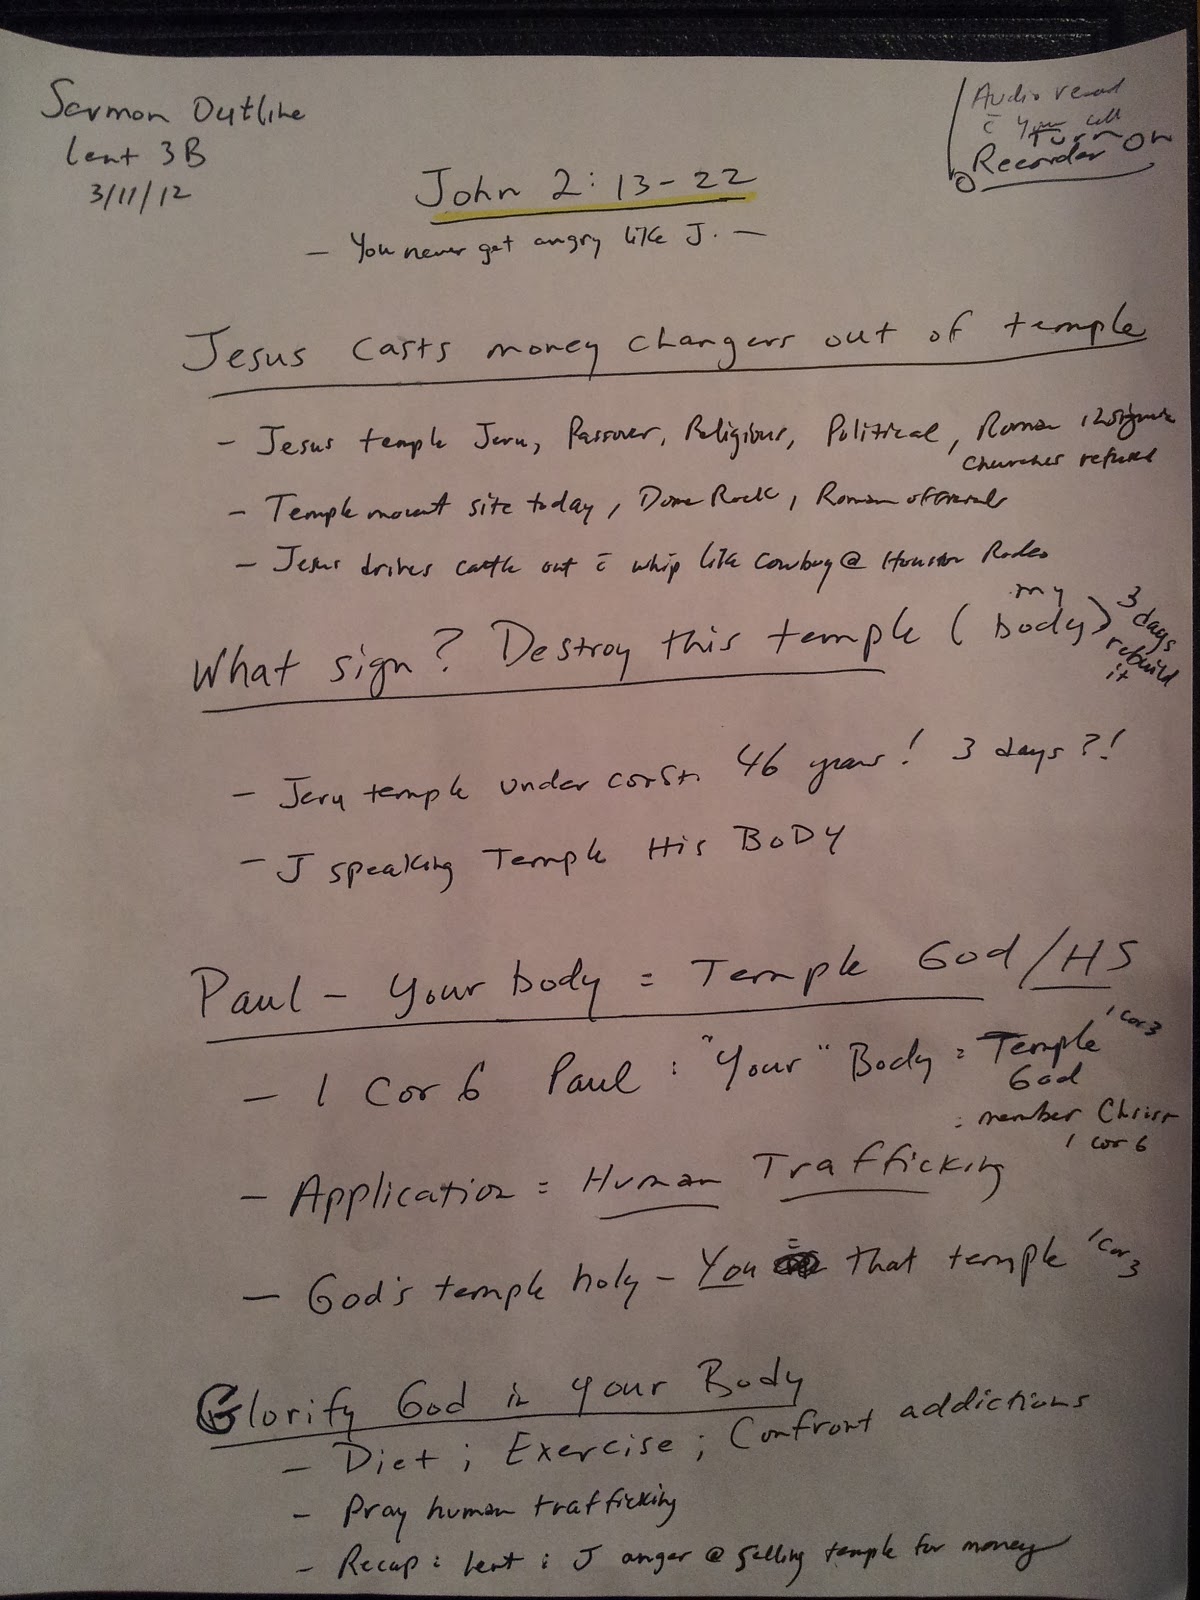 Sermon Outline
Lent 3B
3/11/12
Audio record
c̄ your cell
Turn on
Recorder
John 2:13-22
- You never get angry like J. -
Jesus casts money changers out of temple
- Jesus temple Jeru, Passover, Religious, Political, Roman insignia
churches refused
- Temple mount site today, Dome Rock, Roman
- Jesus drives cattle out c̄ whip like cowboy @ Houston Rodeo
What sign? Destroy this temple (my body) 3 days rebuild it
- Jeru temple under constr. 46 years! 3 days?!
- J speaking Temple His BODY
Paul - Your body = Temple God/HS
- 1 Cor 6 Paul: "Your" Body = Temple God 1 Cor 3
= member Christ
1 Cor 6
- Application = Human Trafficking
- God's temple holy - You = that temple 1 Cor 3
Glorify God in your Body
- Diet; Exercise; Confront addictions
- Pray human trafficking
- Recap: Lent: J anger @ selling temple for money